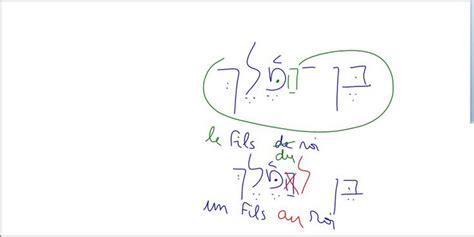 בן־המלך
le fils de roi
du
בן למלך
un fils au roi